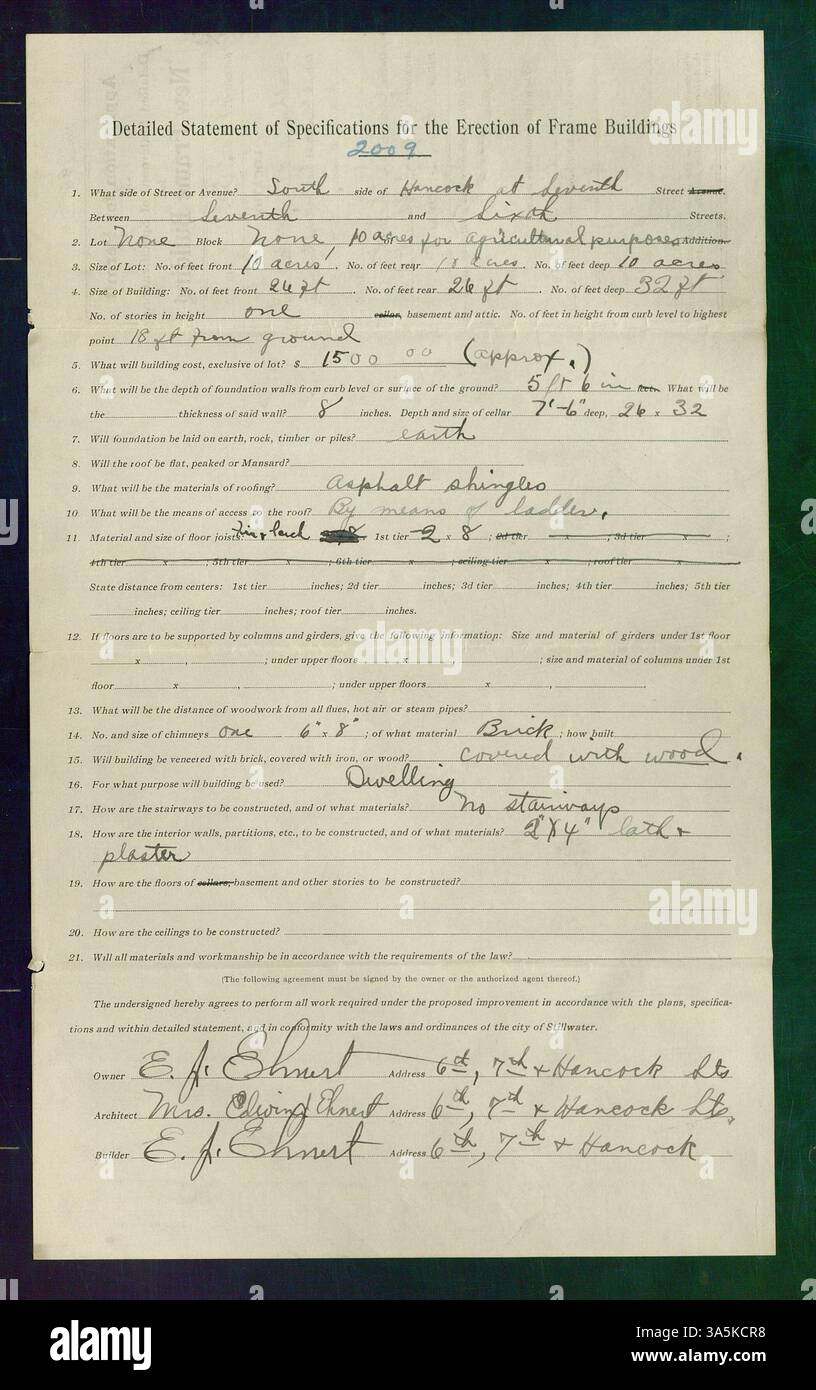 Detailed Statement of Specifications for the Erection of Frame Buildings
2009
1. What side of Street or Avenue? South side of Hancock at Seventh Street Avenue.
Between Seventh and Sixth Streets.
2. Lot None Block None, 10 acres for agricultural purposes Addition.
3. Size of Lot: No. of feet front 10 acres, . No. of feet rear 10 acres. No. of feet deep 10 acres
4. Size of Building: No. of feet front 26 ft . No. of feet rear 26 ft . No. of feet deep 32 ft
No. of stories in height one cellar, basement and attic. No. of feet in height from curb level to highest
point 18 ft from ground
5. What will building cost, exclusive of lot? $ 1500 00 (approx.)
6. What will be the depth of foundation walls from curb level or surface of the ground? 5 ft 6 in feet. What will be
the thickness of said wall? 8 inches. Depth and size of cellar 7'-6" deep, 26 x 32
7. Will foundation be laid on earth, rock, timber or piles? earth
8. Will the roof be flat, peaked or Mansard?
9. What will be the materials of roofing? Asphalt shingles
10. What will be the means of access to the roof? By means of ladder.
11. Material and size of floor joists: 1st tier 2 x 8 ; 2d tier x ; 3d tier x ;
4th tier x ; 5th tier x ; 6th tier x ; ceiling tier x ; roof tier x
State distance from centers: 1st tier inches; 2d tier inches; 3d tier inches; 4th tier inches; 5th tier
inches; ceiling tier inches; roof tier inches.
12. If floors are to be supported by columns and girders, give the following information: Size and material of girders under 1st floor
x , ; under upper floors x , ; size and material of columns under 1st
floor x , ; under upper floors x , .
13. What will be the distance of woodwork from all flues, hot air or steam pipes?
14. No. and size of chimneys one 6" x 8" ; of what material Brick ; how built
15. Will building be veneered with brick, covered with iron, or wood? covered with wood.
16. For what purpose will building be used? Dwelling
17. How are the stairways to be constructed, and of what materials? No stairways
18. How are the interior walls, partitions, etc., to be constructed, and of what materials? 2"X4" lath +
plaster
19. How are the floors of cellars, basement and other stories to be constructed?
20. How are the ceilings to be constructed?
21. Will all materials and workmanship be in accordance with the requirements of the law?
(The following agreement must be signed by the owner or the authorized agent thereof.)
The undersigned hereby agrees to perform all work required under the proposed improvement in accordance with the plans, specifica-
tions and within detailed statement, and in conformity with the laws and ordinances of the city of Stillwater.
Owner E. J. Ehnert Address 6th, 7th + Hancock Sts
Architect Mrs. Edwin J Ehnert Address 6th, 7th + Hancock Sts.
Builder E. J. Ehnert Address 6th, 7th + Hancock
alamy
alamy
alamy
alamy
a
a
a
a
alamy
Image ID: 3A5KCR8
www.alamy.com